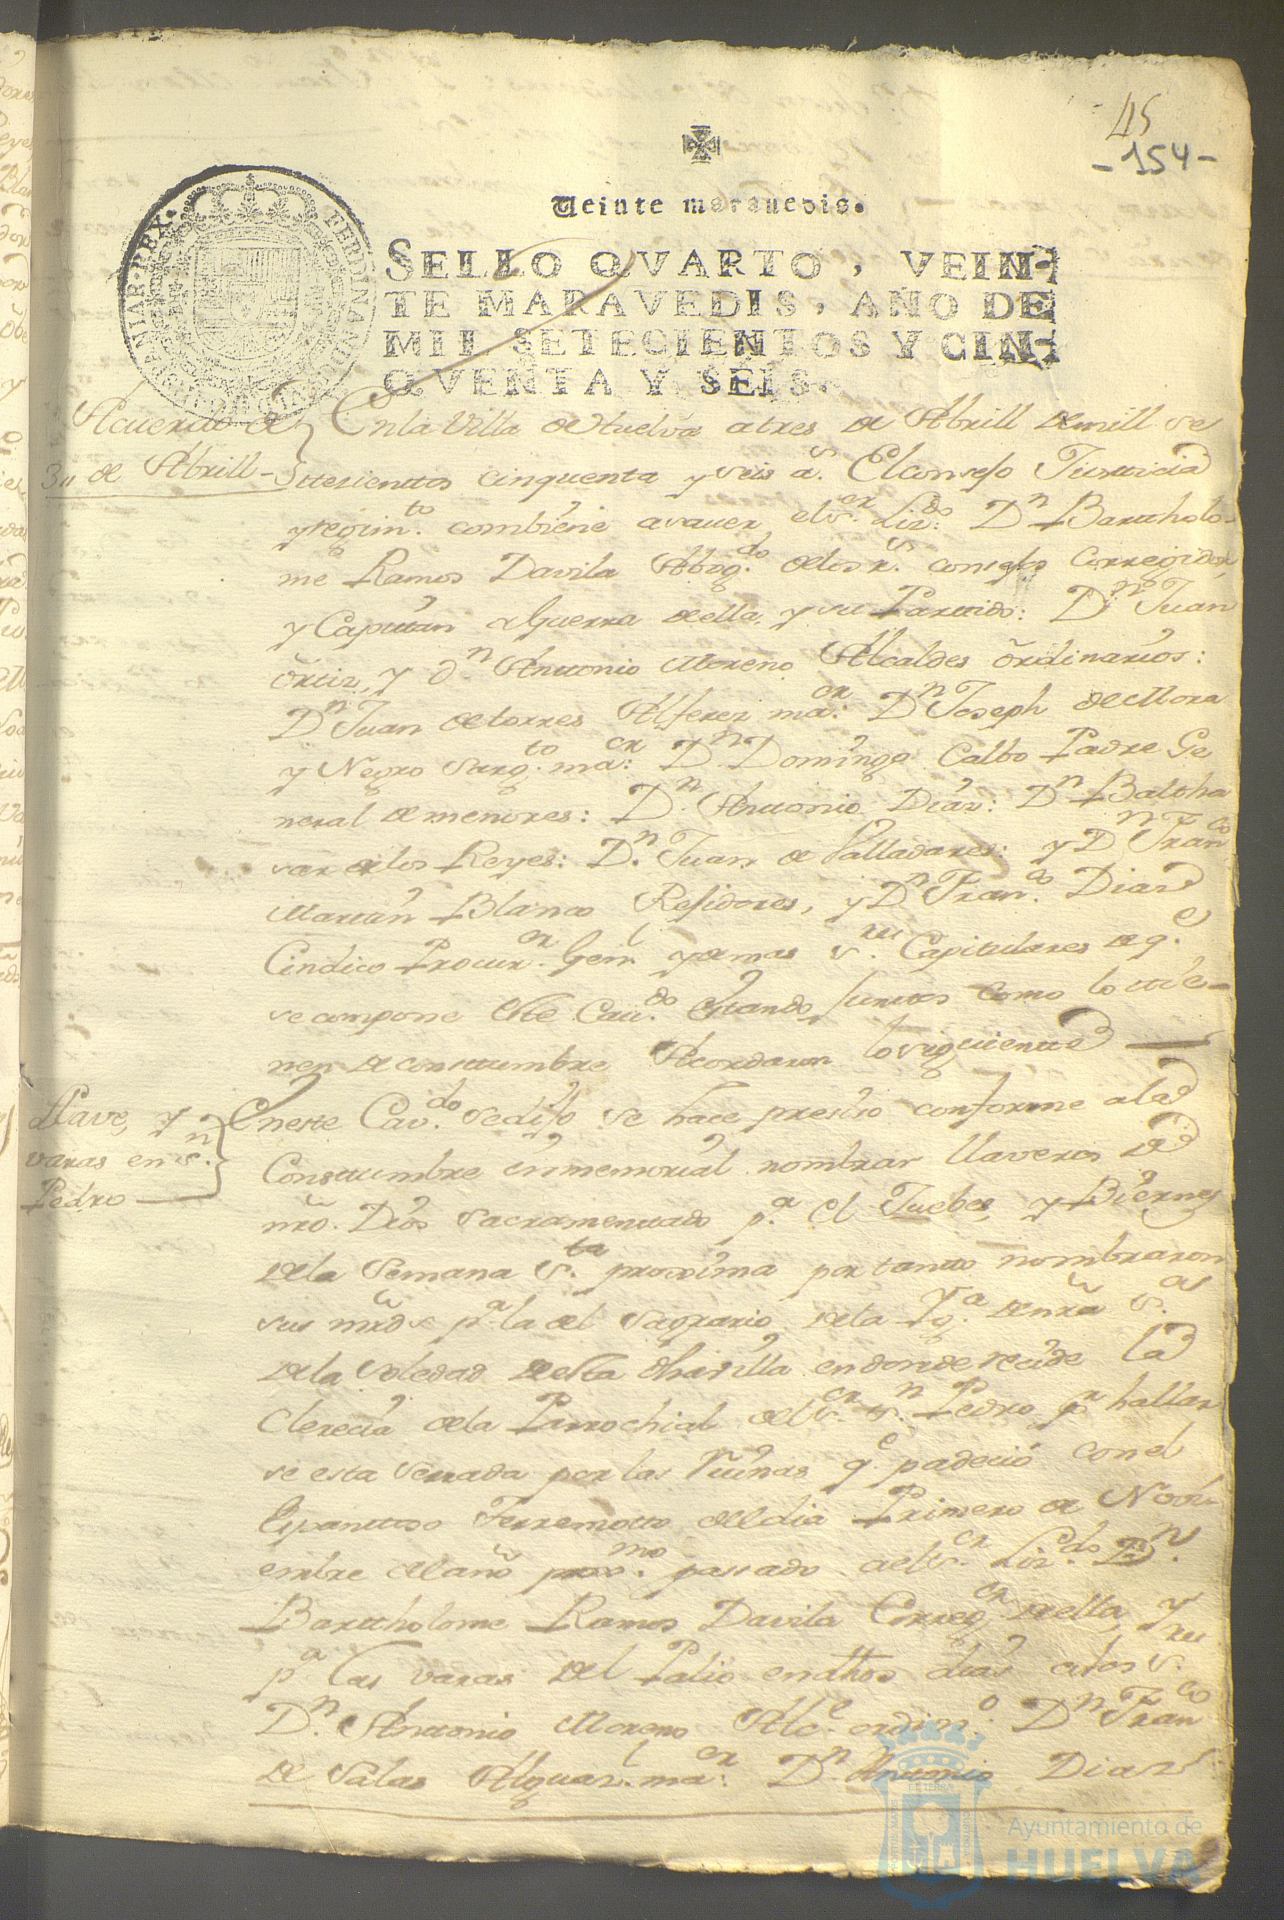 45
-154-
Veinte marauedis.
FERDINANDUS VI. D. G. HISPANIAR. REX.
SELLO QVARTO, VEIN-
TE MARAVEDIS, AÑO DE
MIL SETECIENTOS Y CIN-
QVENTA Y SEIS.
Acuerdo de
3,, de Abrill
En la Villa de Huelva a tres de Abrill de mill se
tteziento cinquenta y seis as. El Consejo Justticia
y regimto. combiene a saver el Sr. Lizdo. Dn Barttholo-
me Ramos Davila Abogdo. de los rs. consejos Corregidor,
y Capitán a Guerra de ella, y su Parttido: Dn Juan
Ortiz, y Dn Anttonio Moreno Alcaldes ordinarios:
Dn Juan de torres Alferez maor: Dn Joseph de Mora
y Negro Sargto. maor: Dn Domingo Calbo Padre Ge
neral de menores: Dn. Anttonio Diaz: Dn Baltha
sar de los Reyes: Dn. Juan de Valladares: y Dn Franco
Martín Blanco Rejidores, y Dn Franco. Diaz
Cindico Procuror. Genl. y demas Sres. Capitulares de qe.
se compone este Cavdo. estando junttos como lo ttie-
nen de consttumbre Acordaron lo siguientte
Llave, y
varas en Sn.
Pedro
En este Cavdo. se dijo se hace presiso conforme a la
Consttumbre inmemorial nombrar llaveros de
nro. Dios Sacramenttado pa. el Juebes, y Biernes
de la Semana Sta. proxima por tantto nombraron
sus mrds pa la del Sagrario de la Yga. de nra Sa.
de la Soledad de esta dha villa en donde recide la
Clerecia de la Parrochial del Sr. Sn. Pedro pr hallar
se esta serrada por las Ruinas qe. padecio con el
Espanttoso Terremotto del dia Primero de Novi-
embre del año proxmo. passado al Sr. Lizdo. Dn.
Barttholome Ramos Davila Corregor de ella, y
pa las varas del Palio en dhos dias a los Sres.
Dn. Anttonio Moreno Alce. ordino. Dn Franco
de Salas Alguazl. maor. Dn Anttonio Diaz
Ayuntamiento de
HUELVA